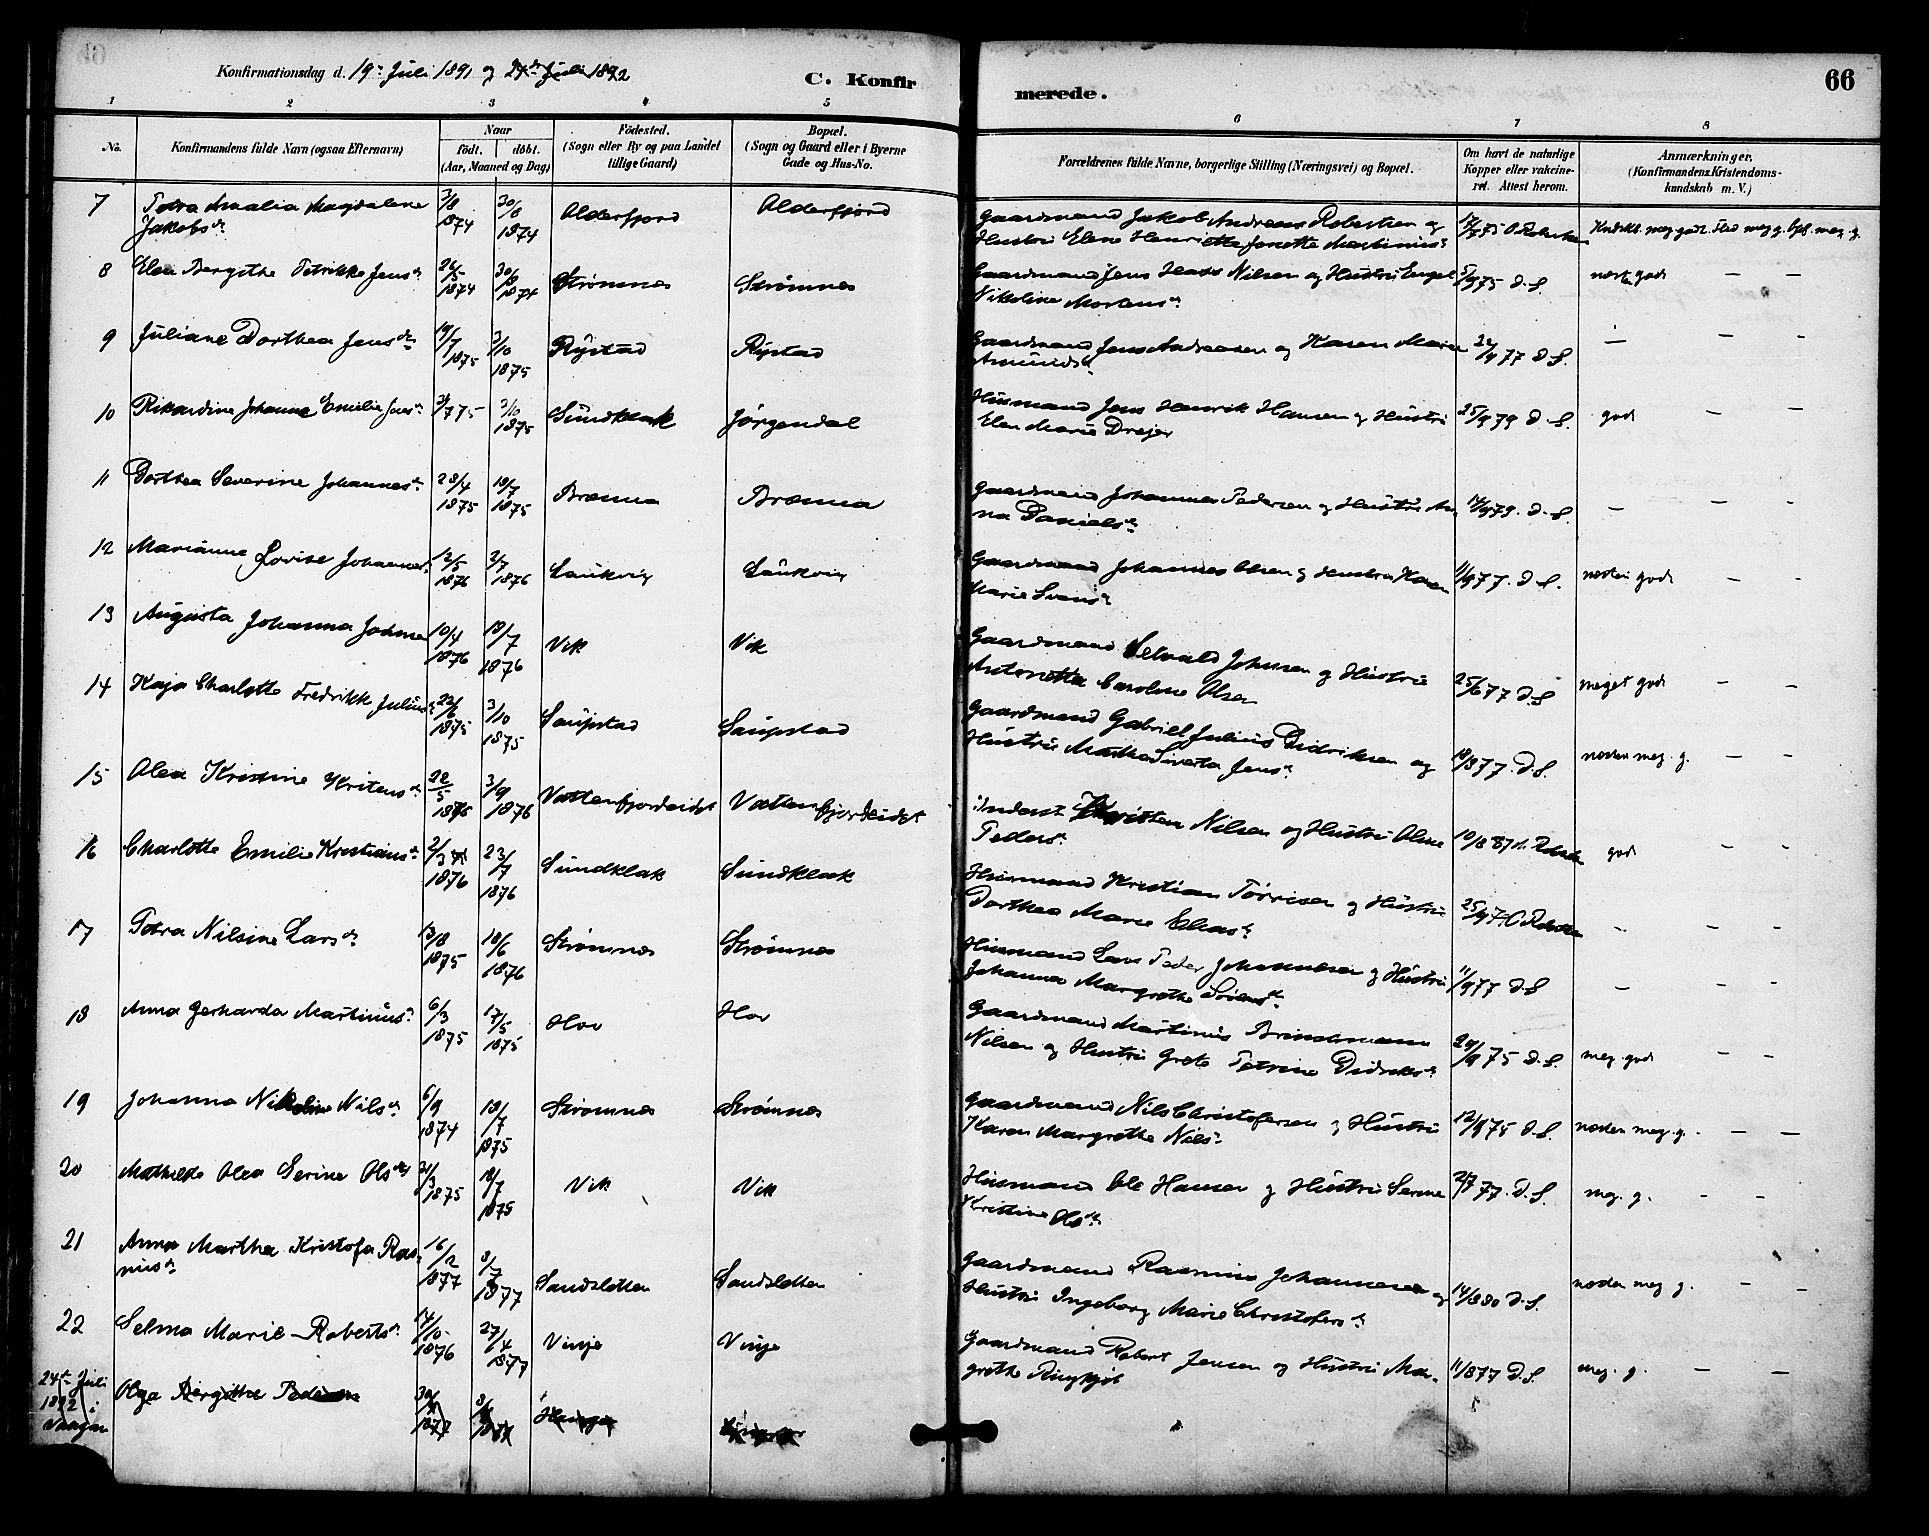 Konfirmationsdag d. 19de Juli 1891 og 24de Juli 1892
C. Konfir
merede.
66
1 2 3 4 5 6 7 8
No.
Konfirmandens fulde Navn (ogsaa Efternavn)
Naar
födt. döbt.
(Aar, Maaned og Dag)
Födested.
(Sogn eller By og paa Landet
tillige Gaard)
Bopæl.
(Sogn og Gaard eller i Byerne
Gade og Hus-No.
Forældrenes fulde Navne, borgerlige Stilling (Næringsvei) og Bopæl.
Om havt de naturlige
Kopper eller vakcine-
ret. Attest herom.
Anmærkninger.
(Konfirmandens Kristendoms-
kundskab m. V.)
7 Petra Amalia Magdalene
Jakobsdr 3/8 1874 30/8 1874 Olderfjord Olderfjord
Gaardmand Jakob Andreas Robertsen og
Hustru Elene Henriette Jonette Martinius
8 Elen Bergithe Petrikke Jensdr 26/5 1874 30/8 1874 Strømnes Strømnes
Gaardmand Jens Hass Nilsen og Hustru Engel
Nikoline Mortensdr 5/9 75 D.S. næsten god — —
9 Juliane Dorthea Jensdr 19/7 1875 3/10 1875 Rystad Rystad
Gaardmand Jens Andreasen og Karen Marie
Amundsdr 24/9 77 D.S. — — -
10 Rikardine Johanne Emilie Jensdr 3/10 1875 Sundklak Jørgendal
Husmand Jens Henrik Hansen og Hustru
Elen Marie Drejer 25/9 79 D.S. god — —
11 Dorthea Severine Johannesdr 28/4 1875 18/7 1875 Brenna Brenna
Gaardmand Johannes Pedersen og Hustru An
na Danielsdr 14/9 79. D.S. — — -
12 Marianne Lovise Johannesdr 12/5 1876 2/7 1876 Laukvig Laukvig
Gaardmand Johannes Olsen og Hustru Karen
Marie Svensdr 11/9 77. D.S. næsten god — —
13 Augusta Johanna Johnsen 10/4 1876 18/7 1876 Vik Vik
Gaardmand Johnsen og Hustru
Antonette Caroline Olsen 25/6 77 D.S meget god — —
14 Kaja Charlotte Fredrikke Juliusdr 22/6 1875 3/10 1875 Saupstad Saupstad
Gaardmand Gabriel Julius Didriksen og
Hustru Martha Sivata Jensdr 18/8 77. D.S. næsten meg. g. — —
15 Olea Kristine Kritensdr 28/5 1876 3/9 1876 Vattenfjordeidet Vattenfjordeidet
Inderst Kristen Nilsen og Hustru Oline
Pedersdr 10/8 87 god - -
16 Charlotte Emilie Kristiansdr 2/3 1876 23/7 1876 Sundklak Sundklak
Husmand Kristian Tørrisen og Hustru
Dorthea Marie Eliasdr - — -
17 Petra Nilsine Larsdr 13/8 1875 18/6 1876 Strømnes Strømnes
Husmand Lars Peder Johannesen og Hustru
Johanna Margrethe 11/9 77 D.S — - -
18 Anna Gerharda Martinusdr 6/3 1875 17/5 1875 Hov Hov
Gaardmand Martinus Brinchmann
Nilsen og Hustru Grete Petrine Didriksdr 29/9 75 D.S. meg. god — —
19 Johanna Nikoline Nilsdr 6/9 1874 18/7 1875 Strømnes Strømnes
Gaardmand Nils Christofersen og Hustru
Karen Margrethe Nilsdr 12/9 75 D.S. næsten meg. g. — —
20 Mathilde Olea Serine Olsdtr 1875 18/7 1875 Vik Vik
Husmand Ole Hansen og Hustru Serine
Kristine Olsdr 77. D.S. meg. g. - -
21 Anna Martha Kristofa Ras-
musdr 16/2 1877 8/7 1877 Sandsletten Sandsletten
Gaardmand Rasmus Johannesen og
Hustru Ingeborg Marie Christofersdr 14/8 80 D.S. næsten meg. g. — —
22 Selma Marie Robertsdr 14/10 1876 27/4 1877 Vinje Vinje
Gaardmand Robert Jensen og Hustru Mar-
grethe 11/8 77 D.S. meg. g. — —
24de Juli
1892 i
Vaagan
Olga Bergithe Pedersen 1877